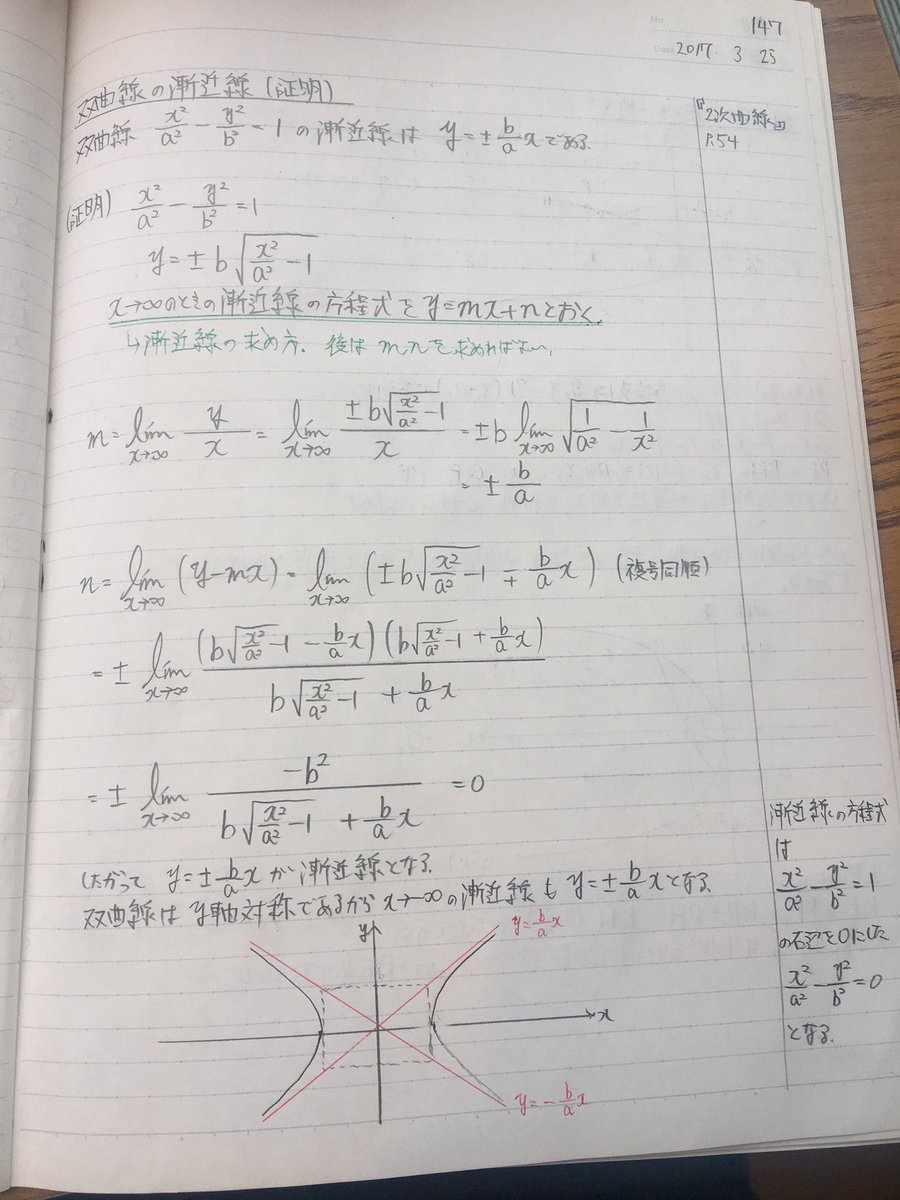 No. 147
Date 2017 3 25
双曲線の漸近線(証明)
双曲線 x²/a² - y²/b² = 1 の漸近線は y = ± b/a x である.
『2次曲線』
P.54
(証明) x²/a² - y²/b² = 1
y = ± b√(x²/a² - 1)
x→∞のときの漸近線の方程式を y=mx+n とおく.
↳漸近線の求め方. 後は m n を求めればよい.
m = lim_{x→∞} y/x = lim_{x→∞} (± b√(x²/a² - 1))/x = ± b lim_{x→∞} √(1/a² - 1/x²)
= ± b/a
n = lim_{x→∞} (y-mx) = lim_{x→∞} (± b√(x²/a² - 1) ∓ b/a x) (複号同順)
= ± lim_{x→∞} ((b√(x²/a² - 1) - b/a x)(b√(x²/a² - 1) + b/a x))/(b√(x²/a² - 1) + b/a x)
= ± lim_{x→∞} (-b²)/(b√(x²/a² - 1) + b/a x) = 0
したがって y = ± b/a x が漸近線となる.
双曲線は y軸対称であるから x→-∞ の漸近線も y = ± b/a x となる.
漸近線の方程式
は
x²/a² - y²/b² = 1
の右辺を0にした
x²/a² - y²/b² = 0
となる.
y
y = b/a x
x
y = - b/a x